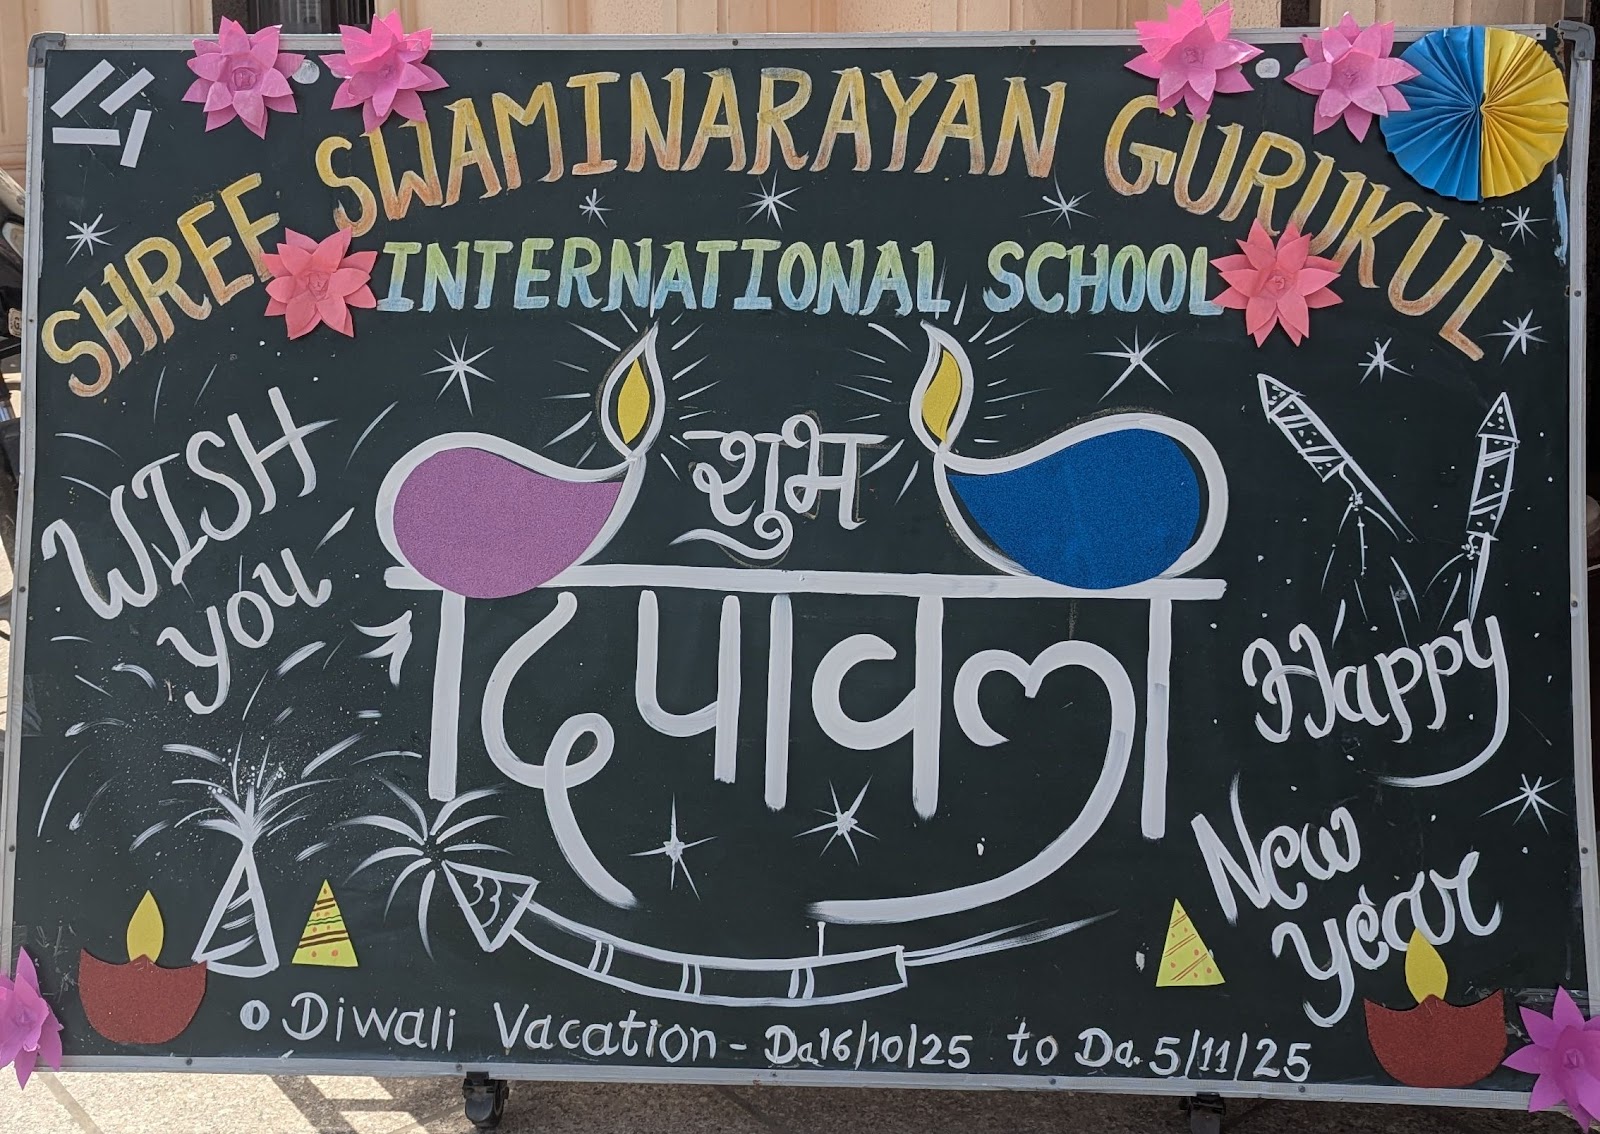 SHREE SWAMINARAYAN GURUKUL
INTERNATIONAL SCHOOL
WISH
you
शुभ
दिपावली
Happy
New
year
Diwali Vacation - Da 16/10/25 to Da. 5/11/25